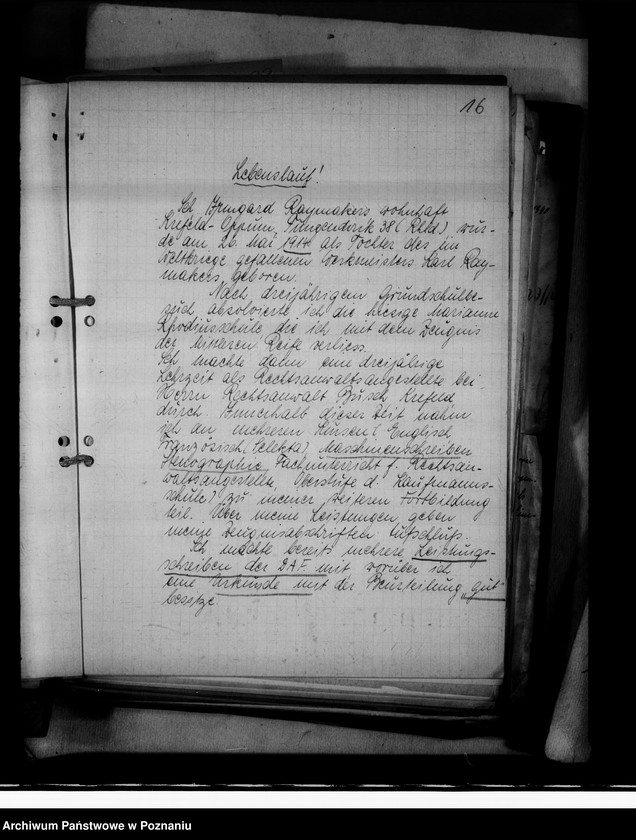 16
Lebenslauf!
Ich Irmgard Raymakers wohnhaft
Krefeld-Oppum, 38 (Rhld.) wur-
de am 26. Mai 1914 als Tochter des im
Weltkriege gefallenen Werkmeisters Karl Ray-
makers, geboren.
Nach dreijährigem Grundschulbe-
such, absolvierte ich die hiesige Marianne
Rhodiusschule die ich mit dem Zeugnis
der Mittleren Reife verliess.
Ich machte dann eine dreijährige
Lehrzeit als Rechtsanwaltsangestellte bei
Herrn Rechtsanwalt Busch Krefeld
durch. Innerhalb dieser Zeit nahm
ich an mehreren Kursen (Englisch,
Französisch (Selekta), Maschinenschreiben
Stenographie, Fachunterricht f. Rechtsan-
waltsangestellte, Oberstufe d. Kaufmanns-
schule) zu meiner weiteren Fortbildung
teil. Über meine Leistungen geben
meine Zeugnisabschriften Aufschluß.
Ich machte bereits mehrere Leistungs-
schreiben der DAF mit worüber ich
eine Urkunde mit der Beurteilung "gut"
besitze
Archiwum Państwowe w Poznaniu